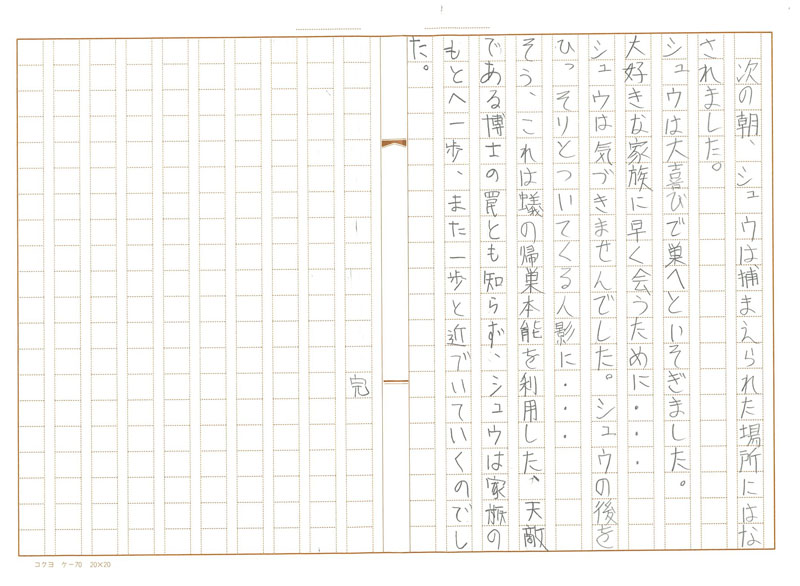 次の朝、シュウは捕まえられた場所にはな
されました。
シュウは大喜びで巣へといそぎました。
大好きな家族に早く会うために・・・
シュウは気づきませんでした。シュウの後を
ひっそりとついてくる人影に・・・
そう、これは蟻の帰巣本能を利用した、天敵
である博士の罠とも知らず、シュウは家族の
もとへ一歩、また一歩と近づいていくのでし
た。
完
コクヨ ケー70 20×20